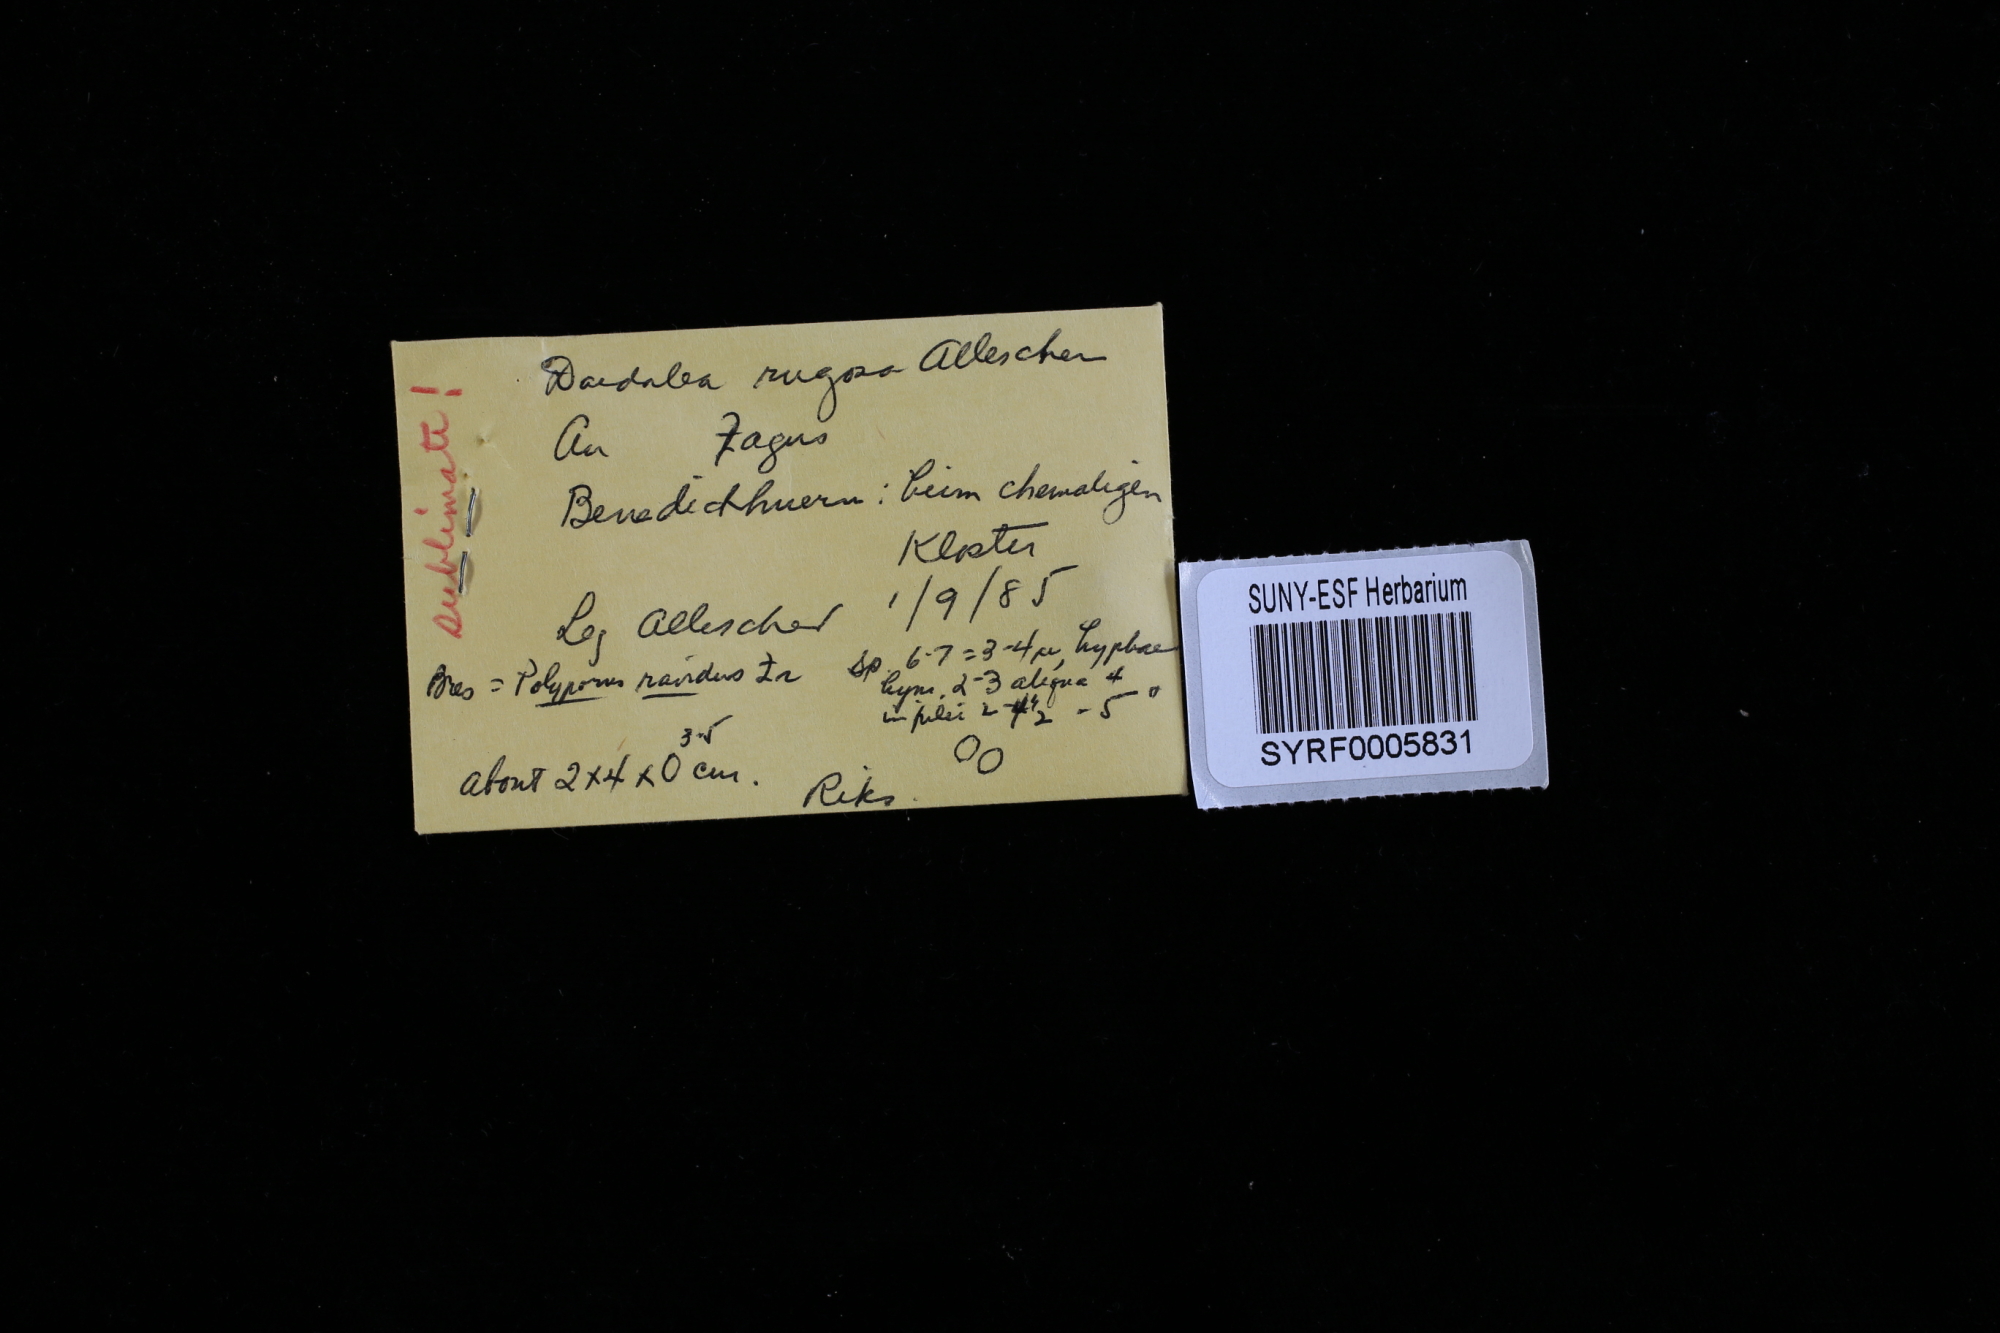 sublimate!
Daedalea rugosa Allescher
An Fagus
Benedichhuern: beim ehemaligen
Kloster
Leg Allescher 1/9/85
Bres = Polyporus ravidus Fr
Sp. 6-7 = 3-4 µ, hyphae
hym. 2-3 aliqua 4
in pilei 2-4 1/2 - 5 "
3-5
about 2x4x0 cm.
Riks.
SUNY-ESF Herbarium
SYRF0005831